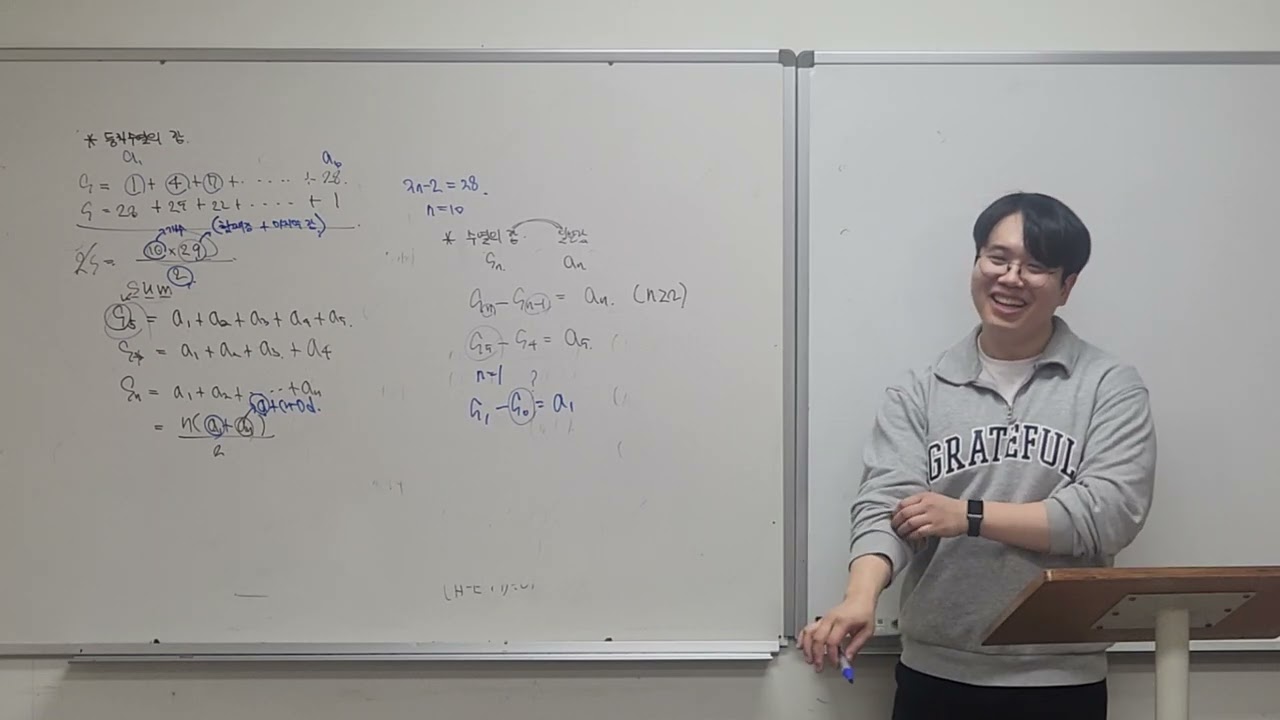 * 등차수열의 합.
a₁ a₁₀
S = 1 + 4 + 7 + ‥‥‥ + 28.
S = 28 + 25 + 22 + ‥‥‥ + 1
개수 (첫째항 + 마지막 항)
2S = 10 × 29
2
Sum
S₅ = a₁ + a₂ + a₃ + a₄ + a₅.
S₄ = a₁ + a₂ + a₃ + a₄
Sₙ = a₁ + a₂ + ‥‥ + aₙ
a₁+(n-1)d.
= n(a₁ + aₙ)
2
3n-2 = 28.
n = 10
* 수열의 합. 일반항
Sₙ aₙ
Sₙ - Sₙ₋₁ = aₙ. (n≥2)
S₅ - S₄ = a₅.
n=1 ?
S₁ - S₀ = a₁
GRATEFUL